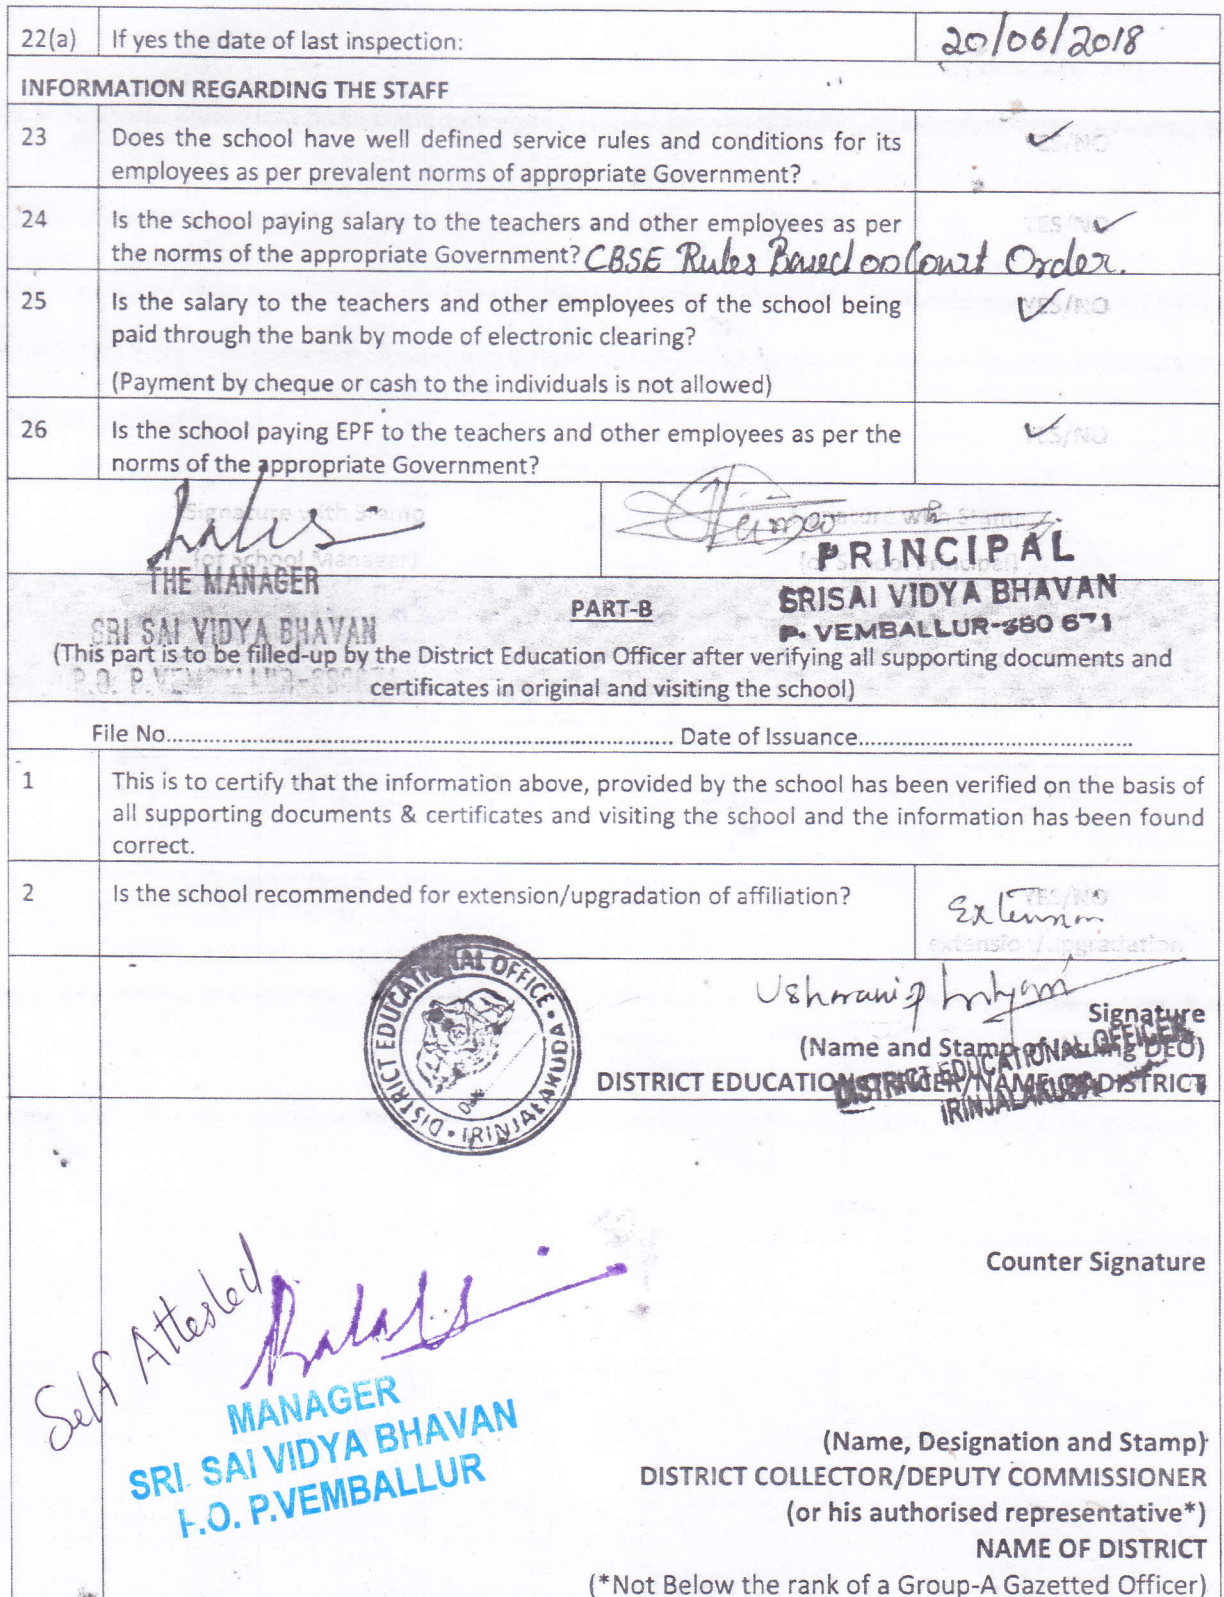 22(a) If yes the date of last inspection: 20/06/2018
INFORMATION REGARDING THE STAFF
23 Does the school have well defined service rules and conditions for its YES/NO
employees as per prevalent norms of appropriate Government?
24 Is the school paying salary to the teachers and other employees as per YES/NO
the norms of the appropriate Government? CBSE Rules Based on Court Order.
25 Is the salary to the teachers and other employees of the school being YES/NO
paid through the bank by mode of electronic clearing?
(Payment by cheque or cash to the individuals is not allowed)
26 Is the school paying EPF to the teachers and other employees as per the YES/NO
norms of the appropriate Government?
Signature with Stamp
(of School Manager)
THE MANAGER
SRI SAI VIDYA BHAVAN
Signature with Stamp
(of School Principal)
PRINCIPAL
SRISAI VIDYA BHAVAN
P. VEMBALLUR-680 671
PART-B
(This part is to be filled-up by the District Education Officer after verifying all supporting documents and
certificates in original and visiting the school)
File No.................... Date of Issuance....................
1 This is to certify that the information above, provided by the school has been verified on the basis of
all supporting documents & certificates and visiting the school and the information has been found
correct.
2 Is the school recommended for extension/upgradation of affiliation? YES/NO
Extension
extension/upgradation
DISTRICT EDUCATIONAL OFFICE • IRINJALAKUDA •
Usharani
Signature
(Name and Stamp of DEO)
DISTRICT EDUCATION OFFICER/NAME OF DISTRICT
DISTRICT EDUCATIONAL OFFICER
IRINJALAKUDA
Counter Signature
Self Attested
MANAGER
SRI SAI VIDYA BHAVAN
P.O. P.VEMBALLUR
(Name, Designation and Stamp)
DISTRICT COLLECTOR/DEPUTY COMMISSIONER
(or his authorised representative*)
NAME OF DISTRICT
(*Not Below the rank of a Group-A Gazetted Officer)